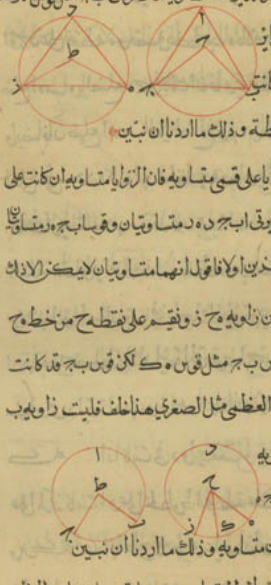 ا
د
ط
ح
كانتي
ز
ه
طة وذلك ما اردنا ان نبين
يا على قسي متساويه فان الزوايا متساويه ان كانت على
رتي ابج د ه ر متساويتان وقوسا بج ه ر متساويتان
خذين اولا فاقول انهما متساويتان لا يمكن الا ذلك
ن زاويه ح ز ونقسم على نقطه ح من خط ه ح
س بج مثل قوس ه ك لكن قوس بج قد كانت
العظمى مثل الصغرى هذا خلف فليست زاويه ب
يه
ا
د
ط
ح
ك
ز
ب
ج
ن متساويه وذلك ما اردنا ان نبين